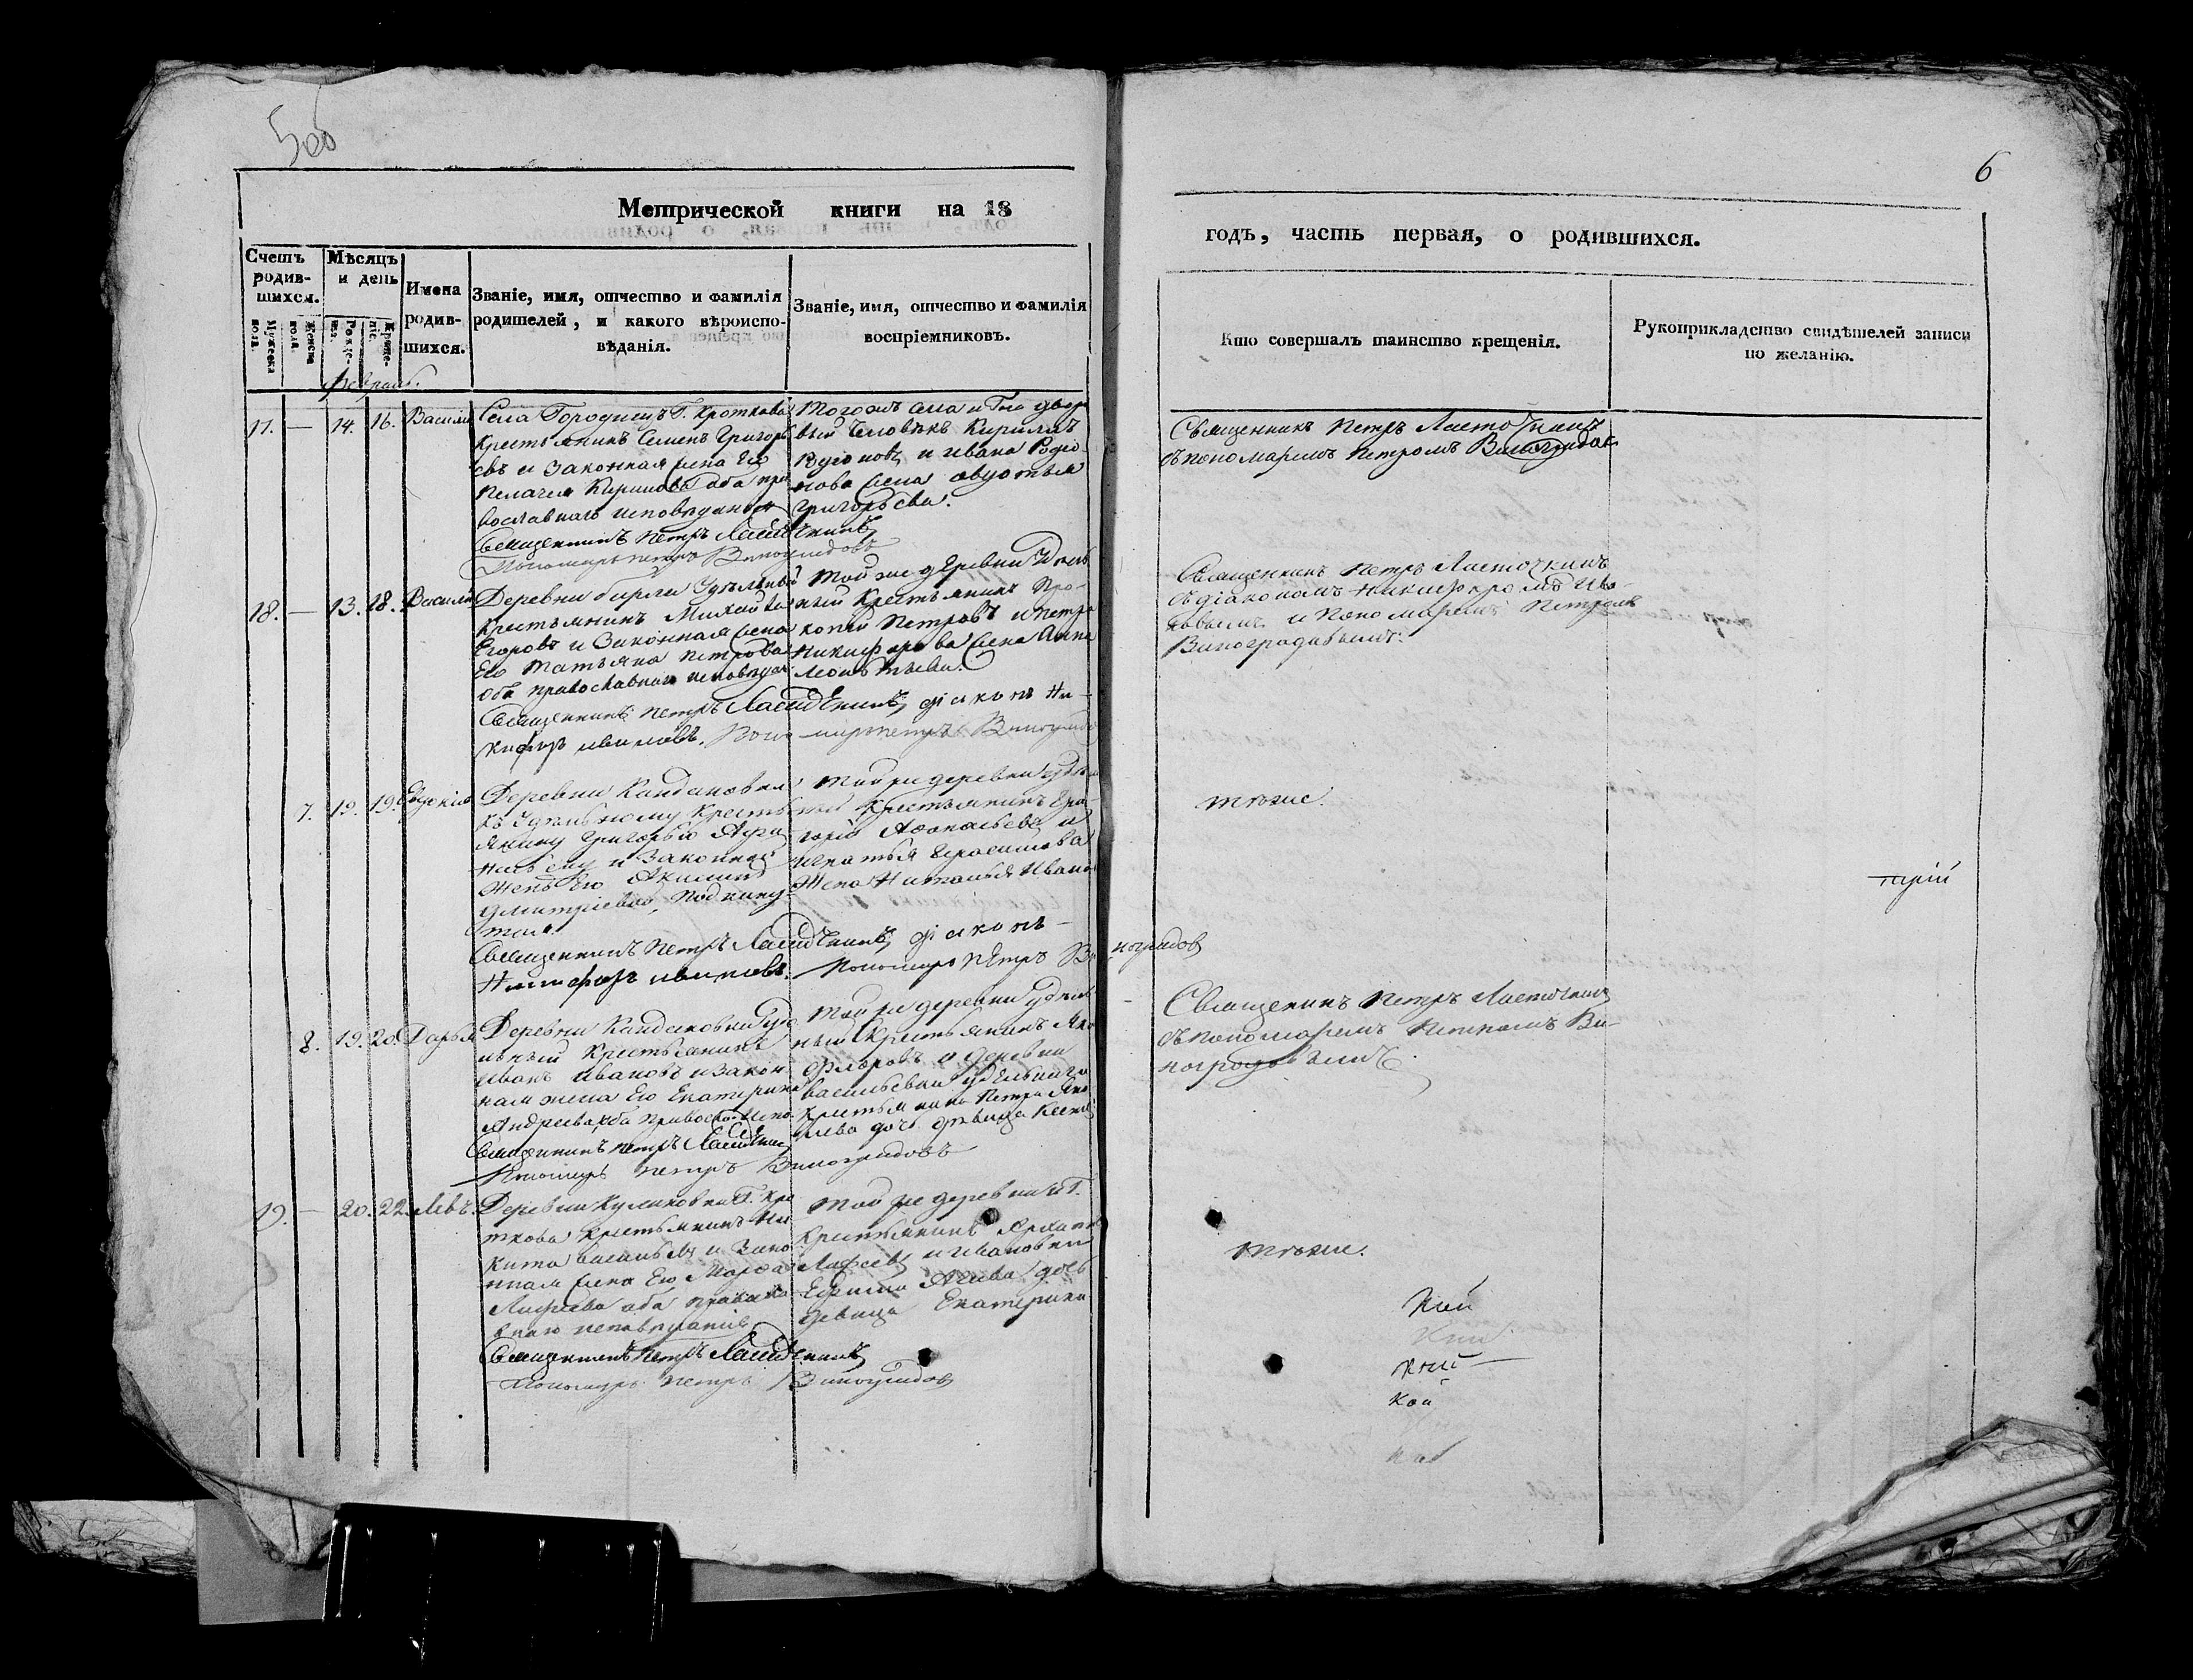 5об
6
Метрической книги на 18
годъ, часть первая, о родившихся.
Счетъ родив-шихся.
Мѣсяцъ и день
Имена родив-шихся.
Званіе, имя, отчество и фамилія родителей, и какого вѣроиспо-вѣданія.
Званіе, имя, отчество и фамилія воспріемниковъ.
Кто совершалъ таинство крещенія.
Рукоприкладство свидѣтелей записи по желанію.
Мужеска пола.
Женска пола.
Рожде-нія.
Креще-ніе.
Февраль.
17. — 14. 16. Василій
Села Городищъ Г. Кроткова
крестьянинъ Семенъ Григорь
евъ и законная жена Его
Пелагея Кирилова оба пра
вославнаго исповеданія
Священникъ Петръ Ласточкинъ
Пономарь Петръ Виноградовъ
Тогожъ села и Г-на дворо
вый человѣкъ Кирилъ
Родіоновъ и Ивана Родіо
нова жена Авдотья
Григорьева.
Священникъ Петръ Ласточкинъ
съ пономаремъ Петромъ Виноградов
18. — 13. 18. Василій
Деревни Бирли Удѣльный
крестьянинъ Михайла
Егоровъ и Законная жена
Его Татьяна Петрова
оба православнаго исповедан
Священникъ Петръ Ласточкинъ, діаконъ Ни-
кифоръ Ивановъ. Пономарь Петръ Виноградо
Той же деревни Удель
ный крестьянинъ Про-
копій Петровъ и Петра
Никифорова жена Анна
Леонтьева.
Священникъ Петръ Ласточкинъ
съ діакономъ Никифоромъ Ива-
новымъ и Пономаремъ Петромъ
Виноградовымъ.
7. 19. 19. Евдокія
Деревни Кандаковки
къ Удѣльному Кресть
янину Григорью Афа
насьеву и Законной
женѣ Его Акилине
Дмитріевой, подкину-
тая.
Священникъ Петръ Ласточкинъ, діаконъ —
Никифоръ Ивановъ. Пономарь Петръ Ви ноградов
Той же деревни удель
ный крестьянинъ Гри-
горій Афанасьевъ и
Игнатья Герасимова
жена Наталья Ивано
тоже.
трій
8. 19. 20. Дарья
Деревни Кандаковки уде
льный крестьянинъ
Иванъ Ивановъ и закон
ная жена Его Екатерина
Андреева оба
Священникъ Петръ Ласточкинъ
Пономарь Петръ Виноградовъ
Той же деревни удель
ный крестьянинъ Яко
Флоровъ и деревни
Васильевки удельнаго
крестьянина Петра Яко
влева дочь девица Ксенія
Священникъ Петръ Ласточкинъ
съ пономаремъ Петромъ Ви-
ноградовымъ.
19. — 20. 22. Левъ.
Деревни Куликовки Г. Кро
ткова крестьянинъ Ни
кита Васильевъ и Зако
нная жена Его Марфа
оба правосла
внаго исповеданія
Священникъ Петръ Ласточкинъ
Пономарь Петръ Виноградов
Той же деревни и Г.
крестьянинъ
и Ивановки
дочь
девица Екатерина
тоже.
кой
кой
кой